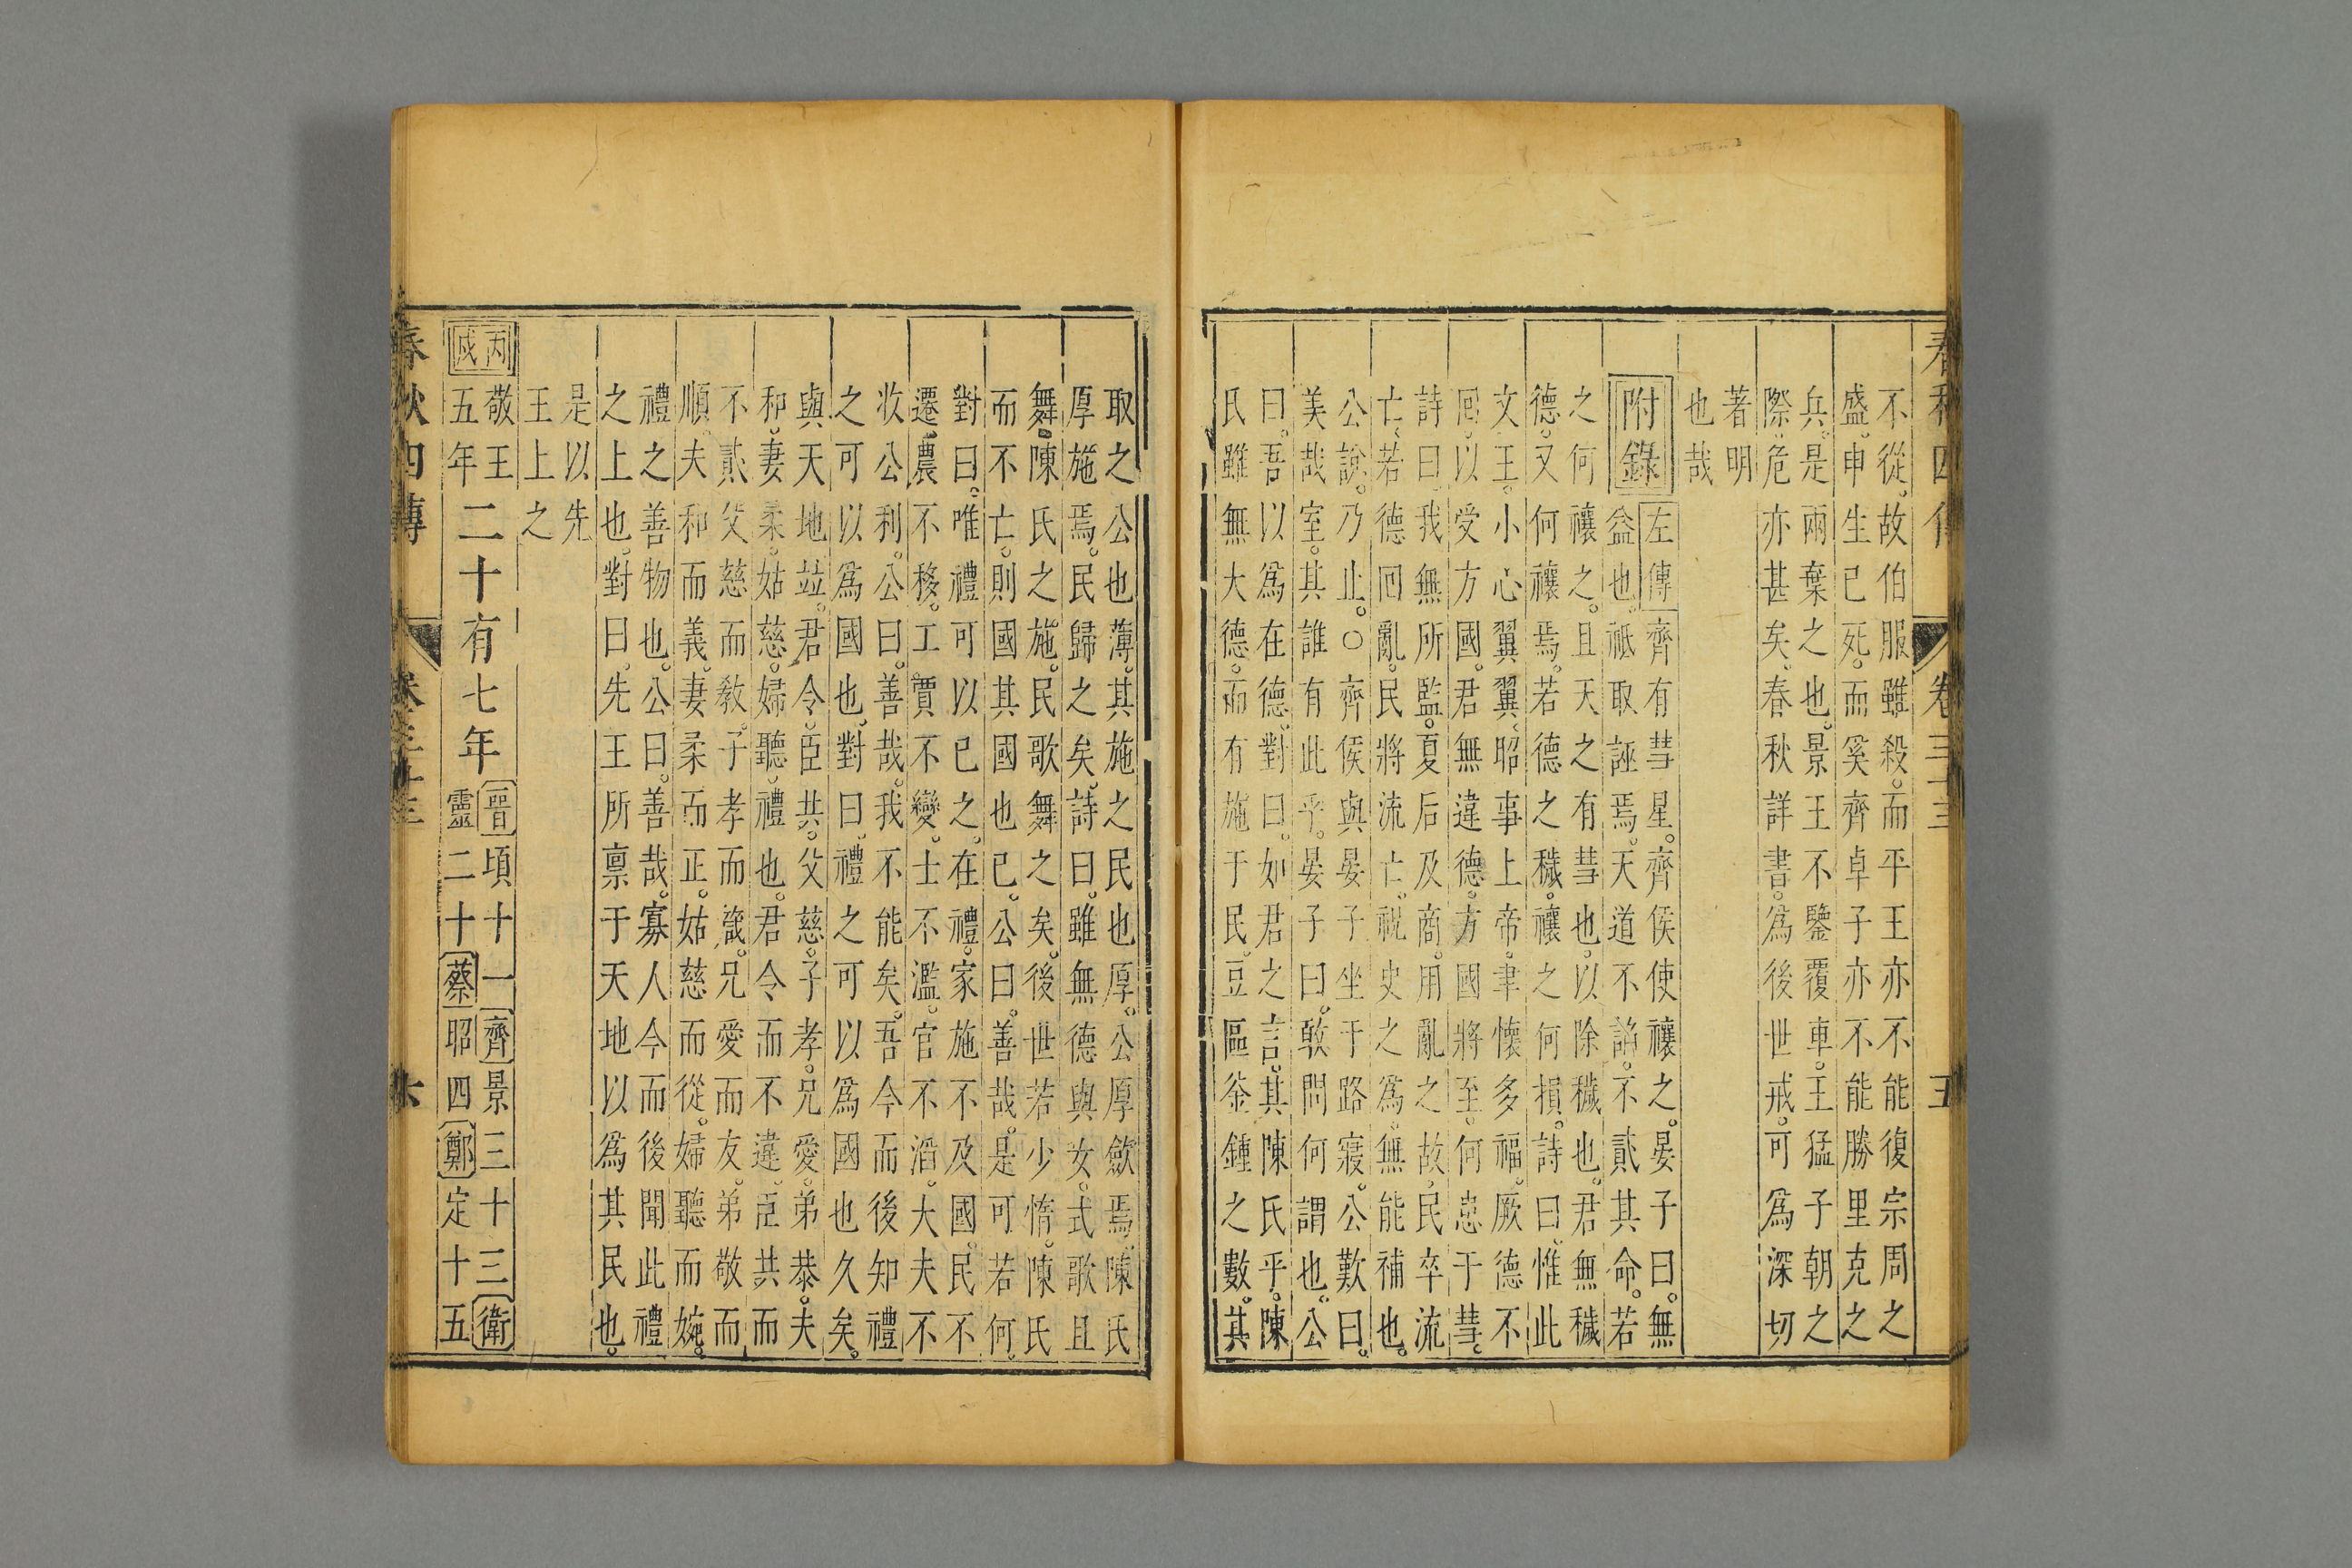 春秋四傳 卷三十三 五
不從故伯服雖殺。而平王亦不能復宗周之
盛。申生已死。而奚齊卓子亦不能勝里克之
兵。是兩棄之也。景王不鑒覆車。王猛子朝之
際。危亦甚矣。春秋詳書。為後世戒。可為深切
著明
也哉
附錄
左傳 齊有彗星。齊侯使禳之。晏子曰。無
益也。祗取誣焉。天道不謟。不貳其命。若
之何禳之。且天之有彗也。以除穢也。君無穢
德。又何禳焉。若德之穢。禳之何損。詩曰。惟此
文王。小心翼翼。昭事上帝。聿懷多福。厥德不
回。以受方國。君無違德。方國將至。何患于彗。
詩曰。我無所監。夏后及商。用亂之故。民卒流
亡。若德回亂。民將流亡。祝史之為。無能補也。
公說。乃止。○齊侯與晏子坐于路寢。公歎曰。
美哉室。其誰有此乎。晏子曰。敢問何謂也。公
曰。吾以為在德。對曰。如君之言。其陳氏乎。陳
氏雖無大德。而有施于民。豆區釜鍾之數。其
取之公也薄。其施之民也厚。公厚斂焉。陳氏
厚施焉。民歸之矣。詩曰。雖無德與女。式歌且
舞。陳氏之施。民歌舞之矣。後世若少惰。陳氏
而不亡。則國其國也已。公曰。善哉。是可若何。
對曰。唯禮可以已之。在禮。家施不及國。民不
遷。農不移。工賈不變。士不濫。官不滔。大夫不
收公利。公曰。善哉。我不能矣。吾今而後知禮
之可以為國也。對曰。禮之可以為國也久矣。
與天地竝。君令。臣共。父慈。子孝。兄愛。弟恭。夫
和。妻柔。姑慈。婦聽。禮也。君令而不違。臣共而
不貳。父慈而教。子孝而箴。兄愛而友。弟敬而
順。夫和而義。妻柔而正。姑慈而從。婦聽而婉。
禮之善物也。公曰。善哉。寡人今而後聞此禮
之上也。對曰。先王所稟于天地以為其民也。
是以先
王上之
丙戌
敬王
五年
二十有七年
晉頃十一 齊景三十三 衛
靈二十 蔡昭四 鄭定十五
春秋四傳 卷三十三 六